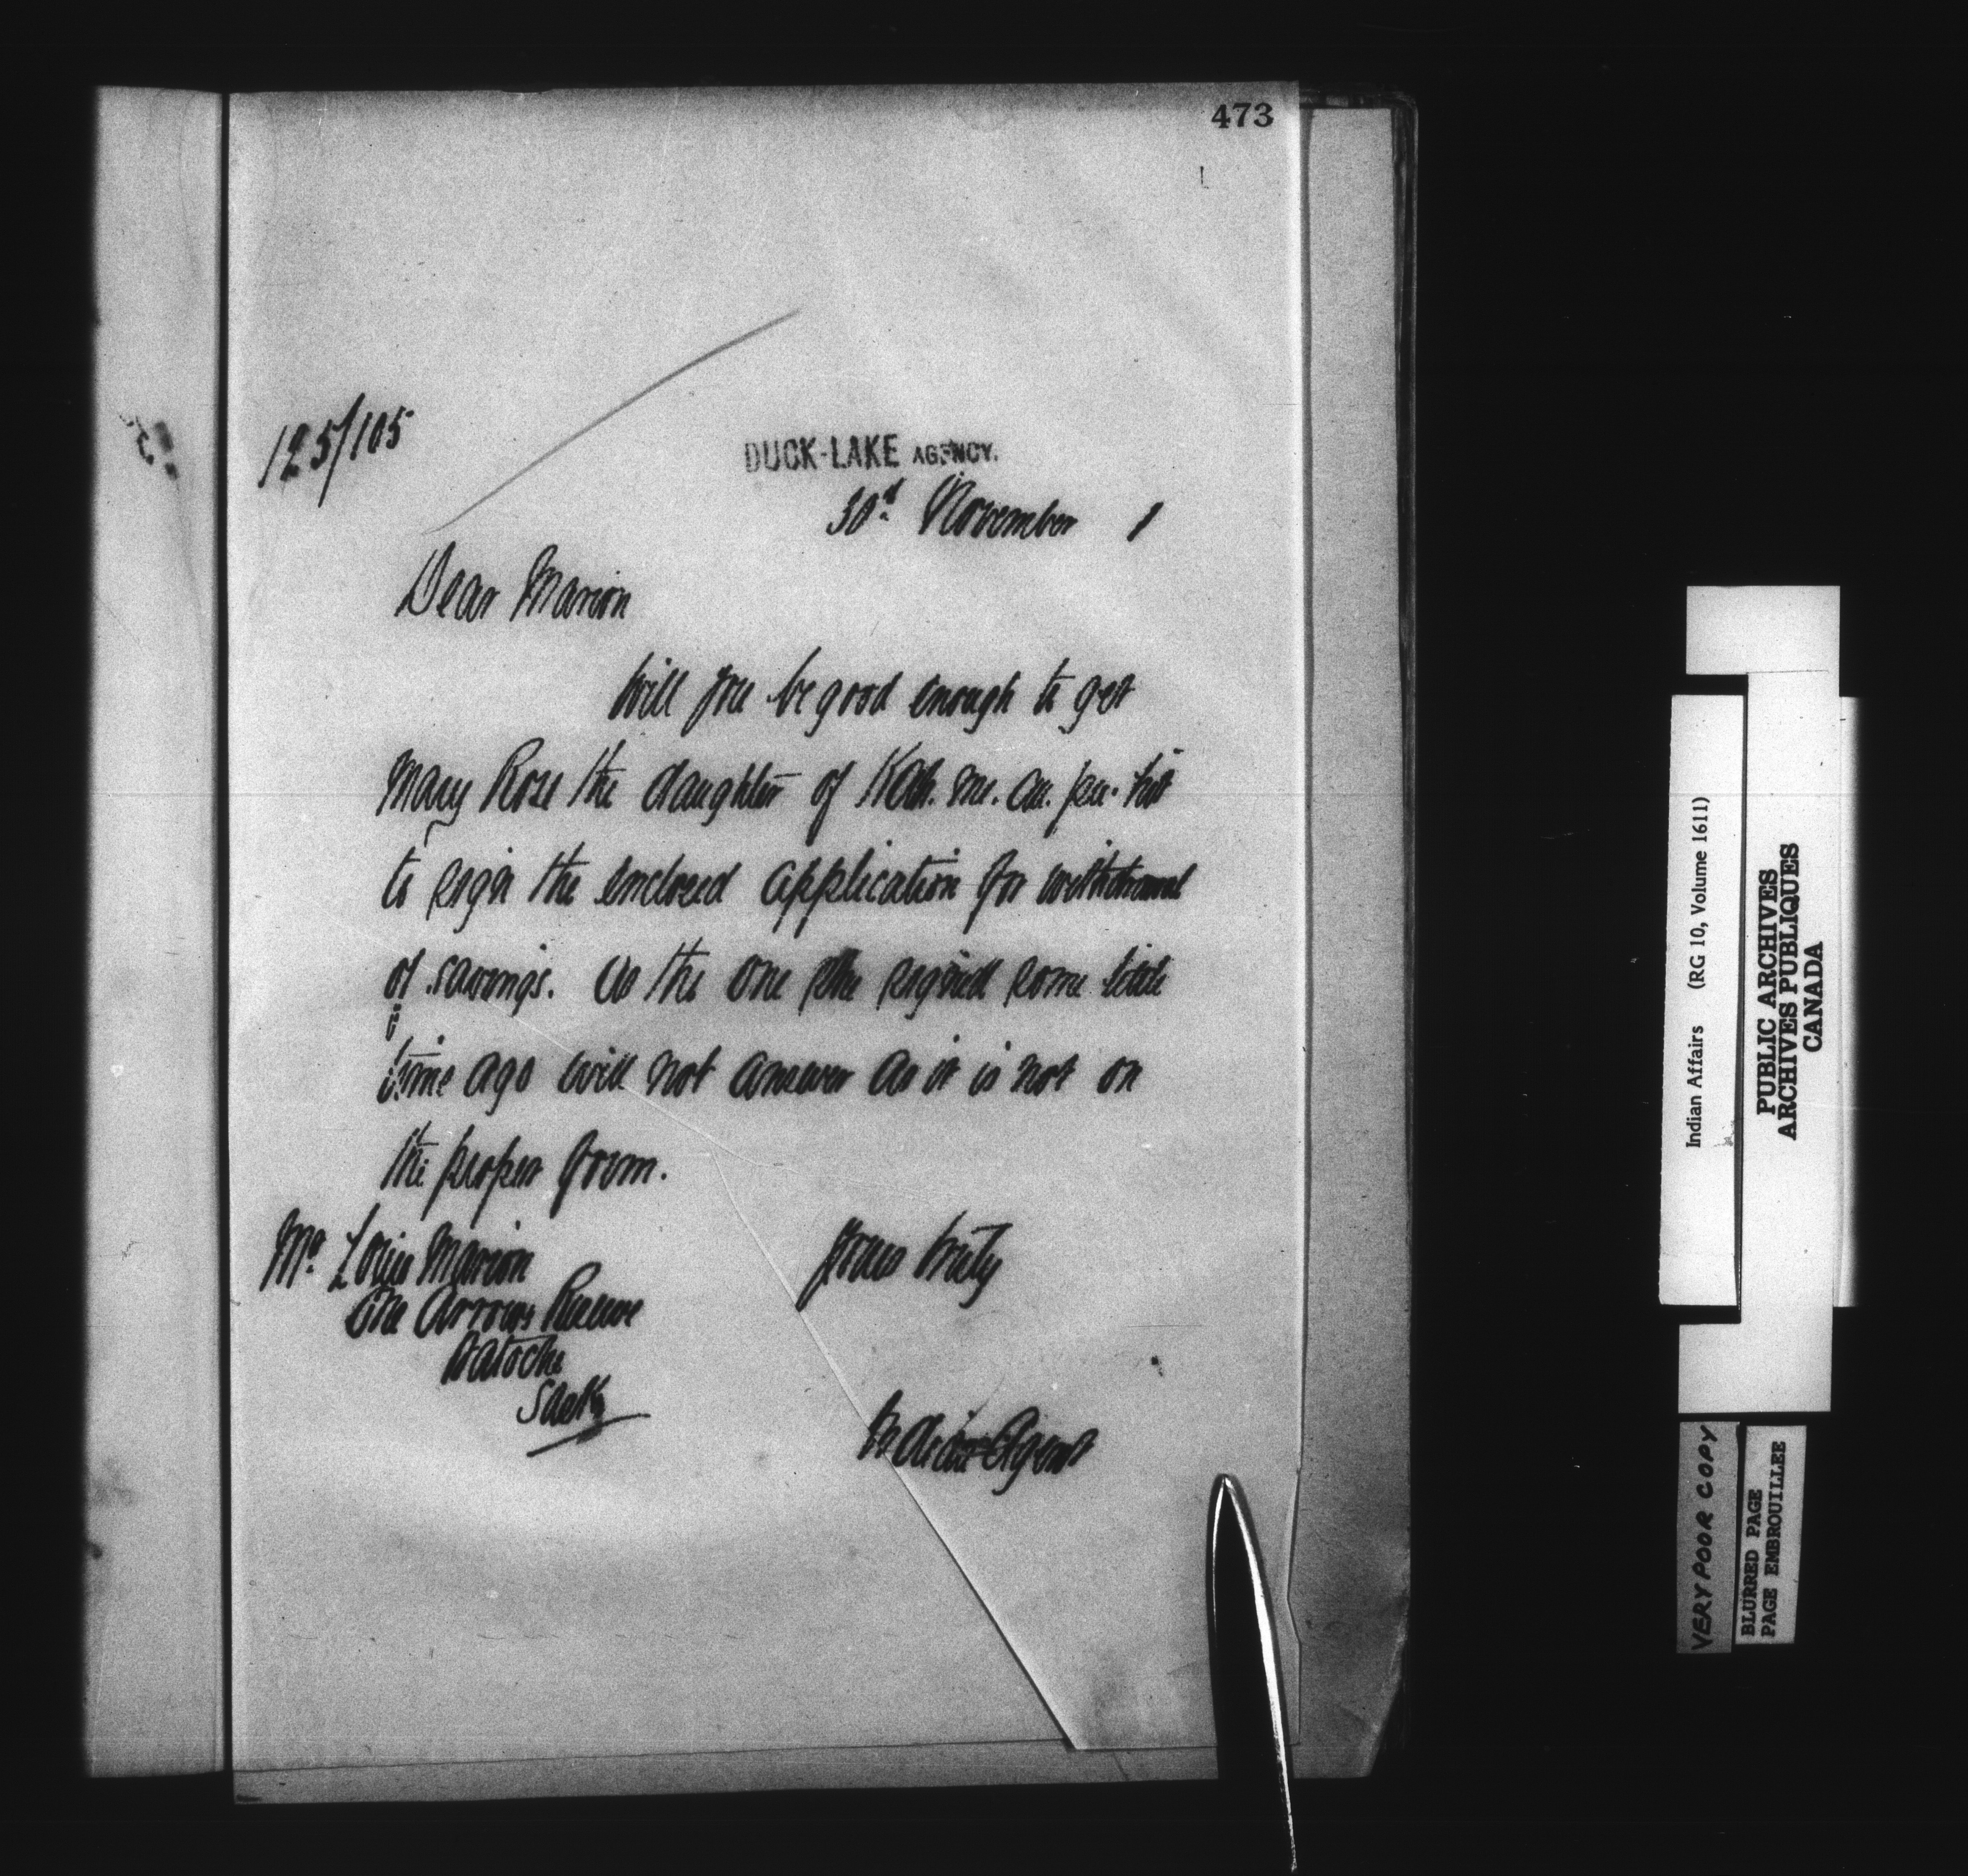 473
125/105
DUCK-LAKE AGENCY.
30d. November 1
Dear Marion
Will you be good enough to get
Mary Rose the daughter of Kah. me. au. pew. tut
to sign the enclosed application for withdrawal
of savings. As the one she signed some little
time ago will not answer as it is not on
the proper form.
Mr. Louis Marion
One Arrows Reserve
Batoche
Sask
Yours truly
Indian Agent
Indian Affairs (RG 10, Volume 1611)
PUBLIC ARCHIVES
ARCHIVES PUBLIQUES
CANADA
VERY POOR COPY
BLURRED PAGE
PAGE EMBROUILLEE